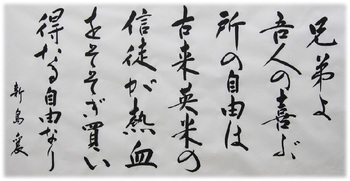 兄弟よ
吾人の喜ぶ
所の自由は
古来英米の
信徒が熱血
をそそぎ買い
得たる自由なり
新島襄